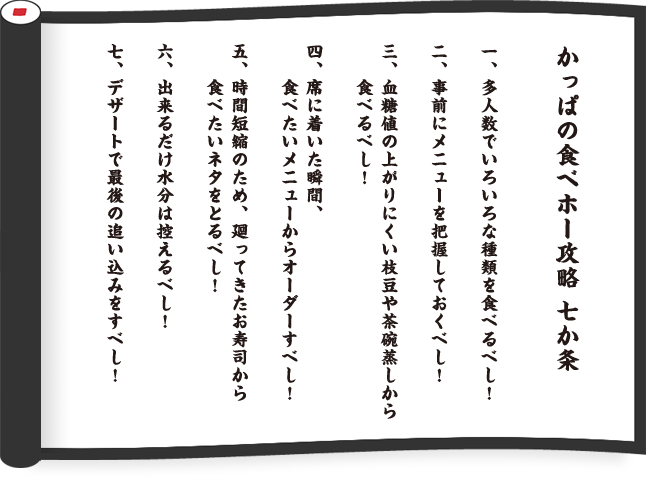 かっぱの食べホー攻略 七か条
一、多人数でいろいろな種類を食べるべし！
二、事前にメニューを把握しておくべし！
三、血糖値の上がりにくい枝豆や茶碗蒸しから
食べるべし！
四、席に着いた瞬間、
食べたいメニューからオーダーすべし！
五、時間短縮のため、廻ってきたお寿司から
食べたいネタをとるべし！
六、出来るだけ水分は控えるべし！
七、デザートで最後の追い込みをすべし！